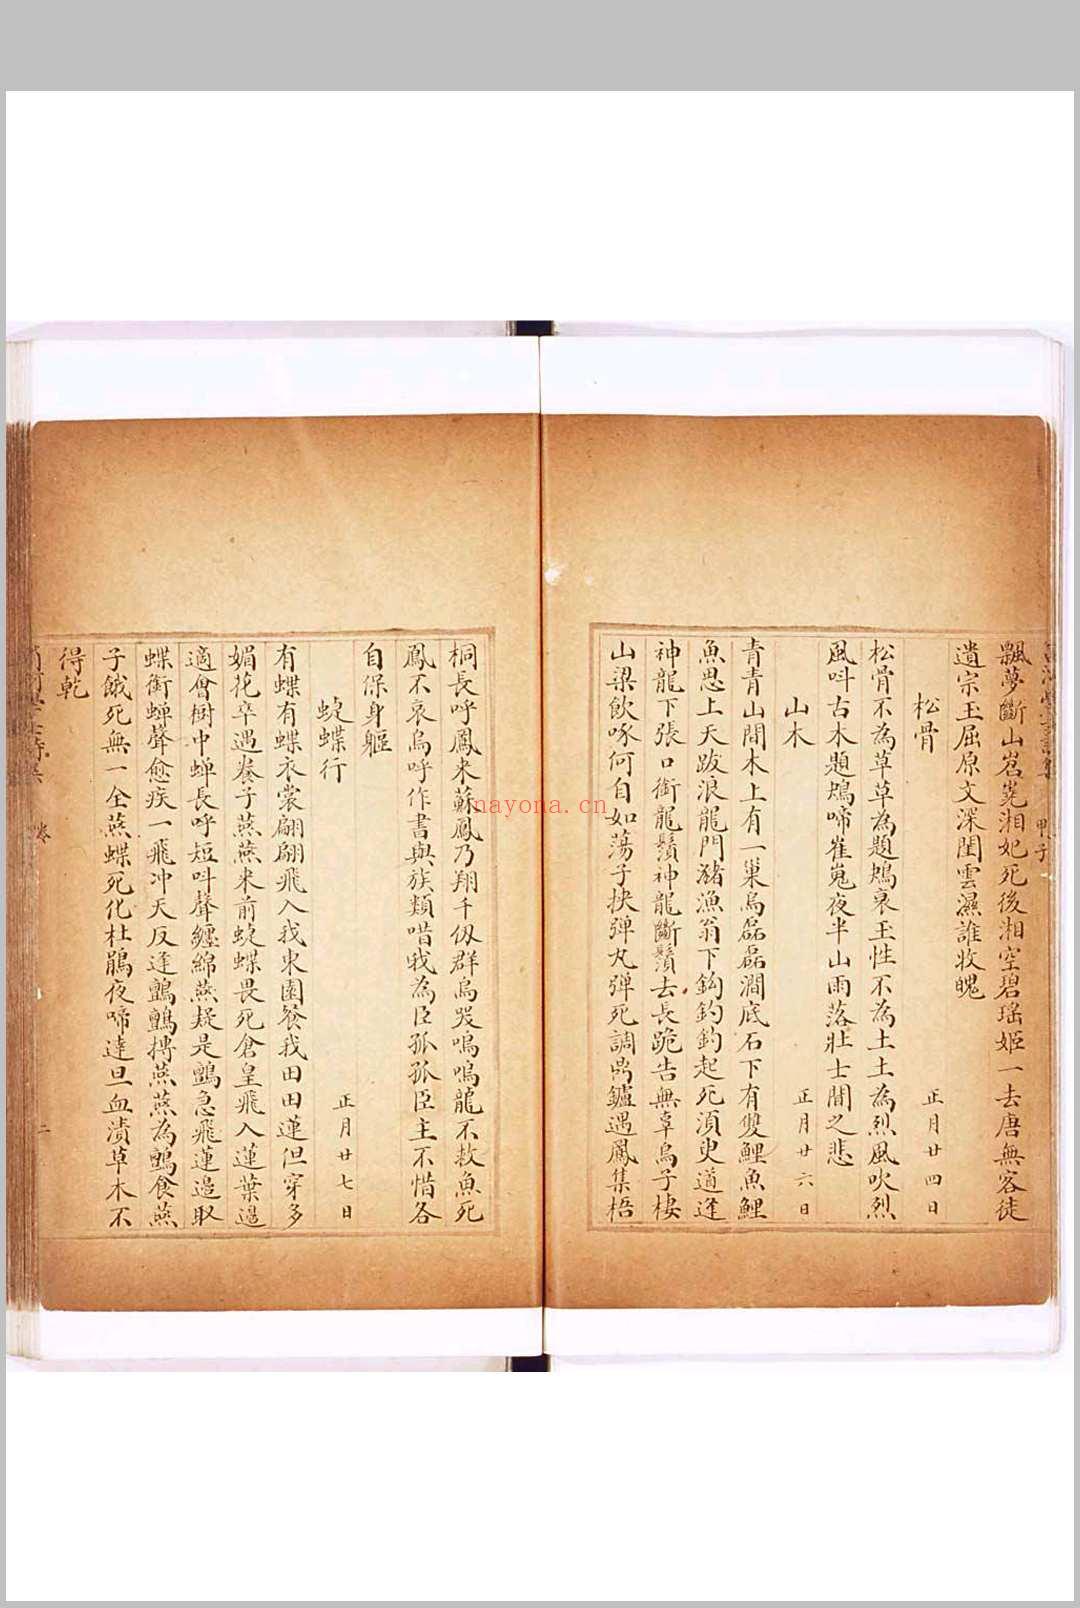 飄夢斷山岧嶤湘妃死後湘空碧瑤姬一去唐無客徒
遺宗玉屈原文深閨雲濕誰收魄
松骨 正月廿四日
松骨不為草草為題鴂哀玉性不為土土為烈風吹烈
風呌古木題鴂啼崔嵬夜半山雨落壯士闇之悲
山木 正月廿六日
青青山閒木上有一巢烏磊磊澗底石下有雙鯉魚鯉
魚思上天跋浪龍門豬漁翁下鈎釣釣起死須臾道逢
神龍下張口銜龍鬚神龍斷鬚去長跪告無辜烏子棲
山梁飲啄何自如蕩子抉彈丸彈死調鼎鑪遇鳳集梧
桐長呼鳳來蘇鳳乃翔千仭群烏哭嗚嗚龍不救魚死
鳳不哀烏呼作書與族類唶我為臣孤孤臣主不惜各
自保身軀
蜨蝶行 正月廿七日
有蝶有蝶衣裳翩翩飛入我東園餐我田田蓮但穿多
媚花卒遇養子燕燕來前蜨蝶畏死倉皇飛入蓮葉邊
適會樹中蟬長呼短呌聲纏綿燕疑是鸇急飛蓮邉取
蝶銜蟬聲愈疾一飛冲天反逢鸇鸇搏燕燕為鸇食燕
子餓死無一全燕蝶死化杜鵑夜啼達旦血漬草木不
得乾
卷
二
甲子
nayona.cn